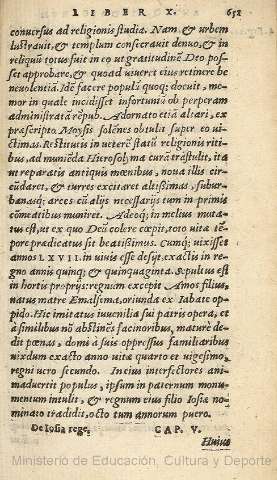 LIBER X. 652
conuersus ad religionis studia. Nam, & urbem
lustrauit, & templum consecrauit denuo, & in
reliquũ totus fuit in eo ut gratitudinẽ Deo pos-
set approbare, & quoad uiueret eius retinere be
neuolentiã. Idẽ facere populũ quoq; docuit, me-
mor in quale incidisset infortuniũ ob perperam
administratã rẽpub. Adornato etiã altari, ex
præscripto Moysis solẽnes obtulit super eo ui-
ctimas. Restitutis in ueterẽ statũ religionis riti-
bus, ad munièda Hierosolyma curã trãstulit, ita
ut reparatis antiquis mœnibus, noua illis cir-
cũdaret, & turres excitaret altissimas, subur-
banasq; arces cũ alijs necessarijs tum in primis
cõmeatibus muniret. Adeoq; in melius muta-
tus est, ut ex quo Deũ colere cœpit, toto uitæ tẽ-
pore prædicatus sit beatissimus. Cumq; uixisset
annos LXVII. in uiuis esse desijt, exactis in re-
gno annis quinq; & quinquaginta. Sepultus est
in hortis proprijs: regnum excepit Amos filius,
natus matre Emalsema, oriunda ex Iabate op-
pido. Hic imitatus iuuenilia sui patris opera, et
à similibus nõ abstinẽs facinoribus, mature de-
dit pœnas, domi à suis oppressus familiaribus
uixdum exacto anno uitæ quarto et uigesimo,
regni uero secundo. In eius interfectores ani-
maduertit populus, ipsum in paternum monu-
mentum intulit, & regnum eius filio Iosiæ no-
minato tradidit, octo tum annorum puero.
De Iosia rege, CAP. V.
Huius
Ministerio de Educación, Cultura y Deporte